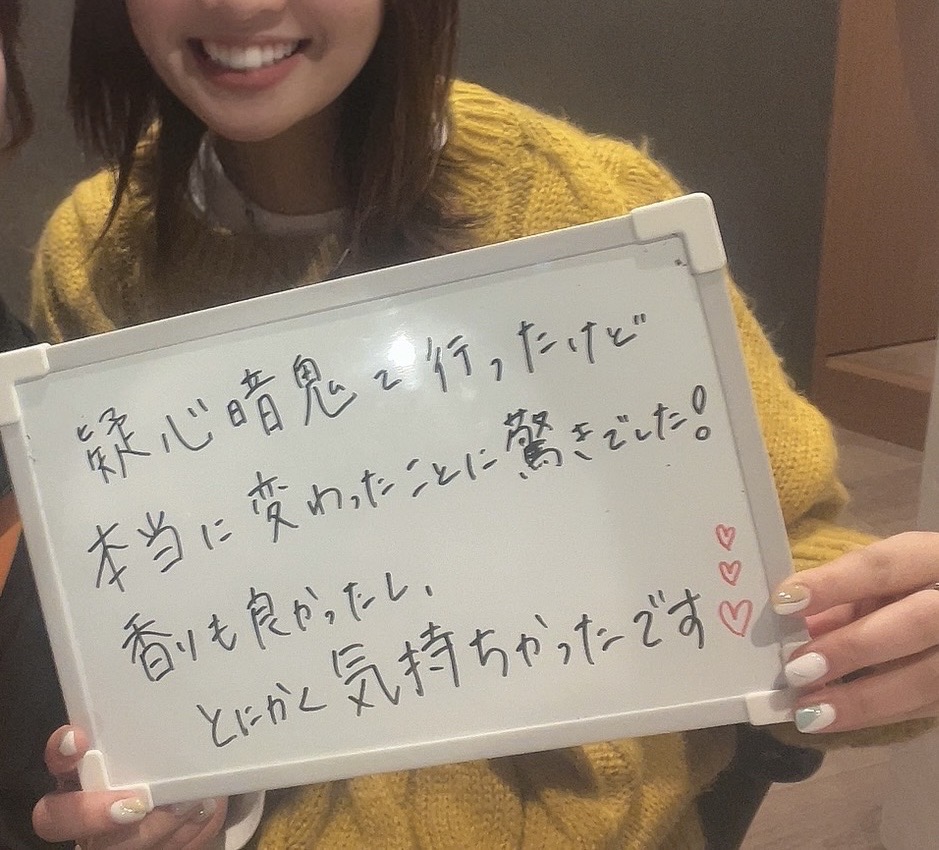 疑心暗鬼で行ったけど
本当に変わったことに驚きでした!
香りも良かったし、
とにかく気持ちかったです♡♡♡